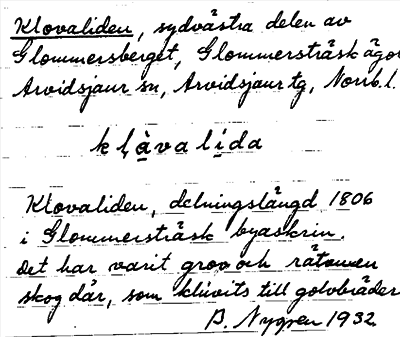 Klovaliden, sydvästra delen av
Glommersberget, Glommersträsk ägor
Arvidsjaur sn, Arvidsjaur tg, Norrb. l.
kl̥àvalída
Klovaliden, delningslängd 1806
i Glommersträsk byaskrin.
Det har varit grov och rätvuxen
skog där, som kluvits till golvbräder
B. Nygren 1932.